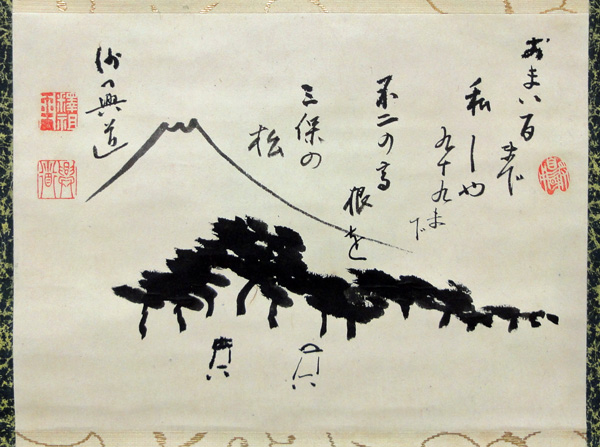 おまい百まで
私しや
九十九まで
不二の高
根を
三保の
松
沙门興道